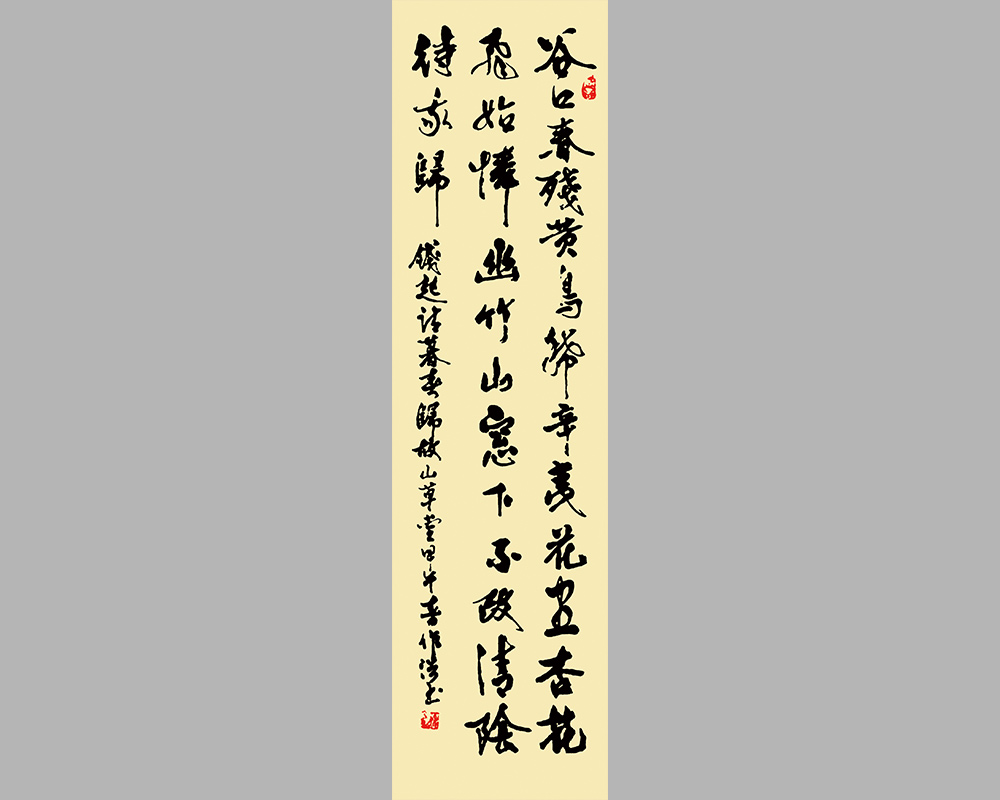 谷口春殘黄鳥稀辛夷花盡杏花
飛始憐幽竹山窓下不改清陰
待我歸
錢起詩暮春歸故山草堂甲午春作浩書